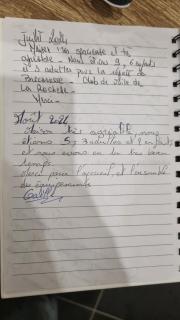 Juillet
Maison très spacieuse et très
agréable. Nous étions 9, 6 enfants
et 3 adultes pour la
Club de voile de
La Rochelle.
Merci.
Août 2021
Maison très agréable, nous
étions 5 : 3 adultes et 2 enfants
et nous avons eu du très beau
temps.
Merci pour l'accueil, et l'ensemble
des équipements